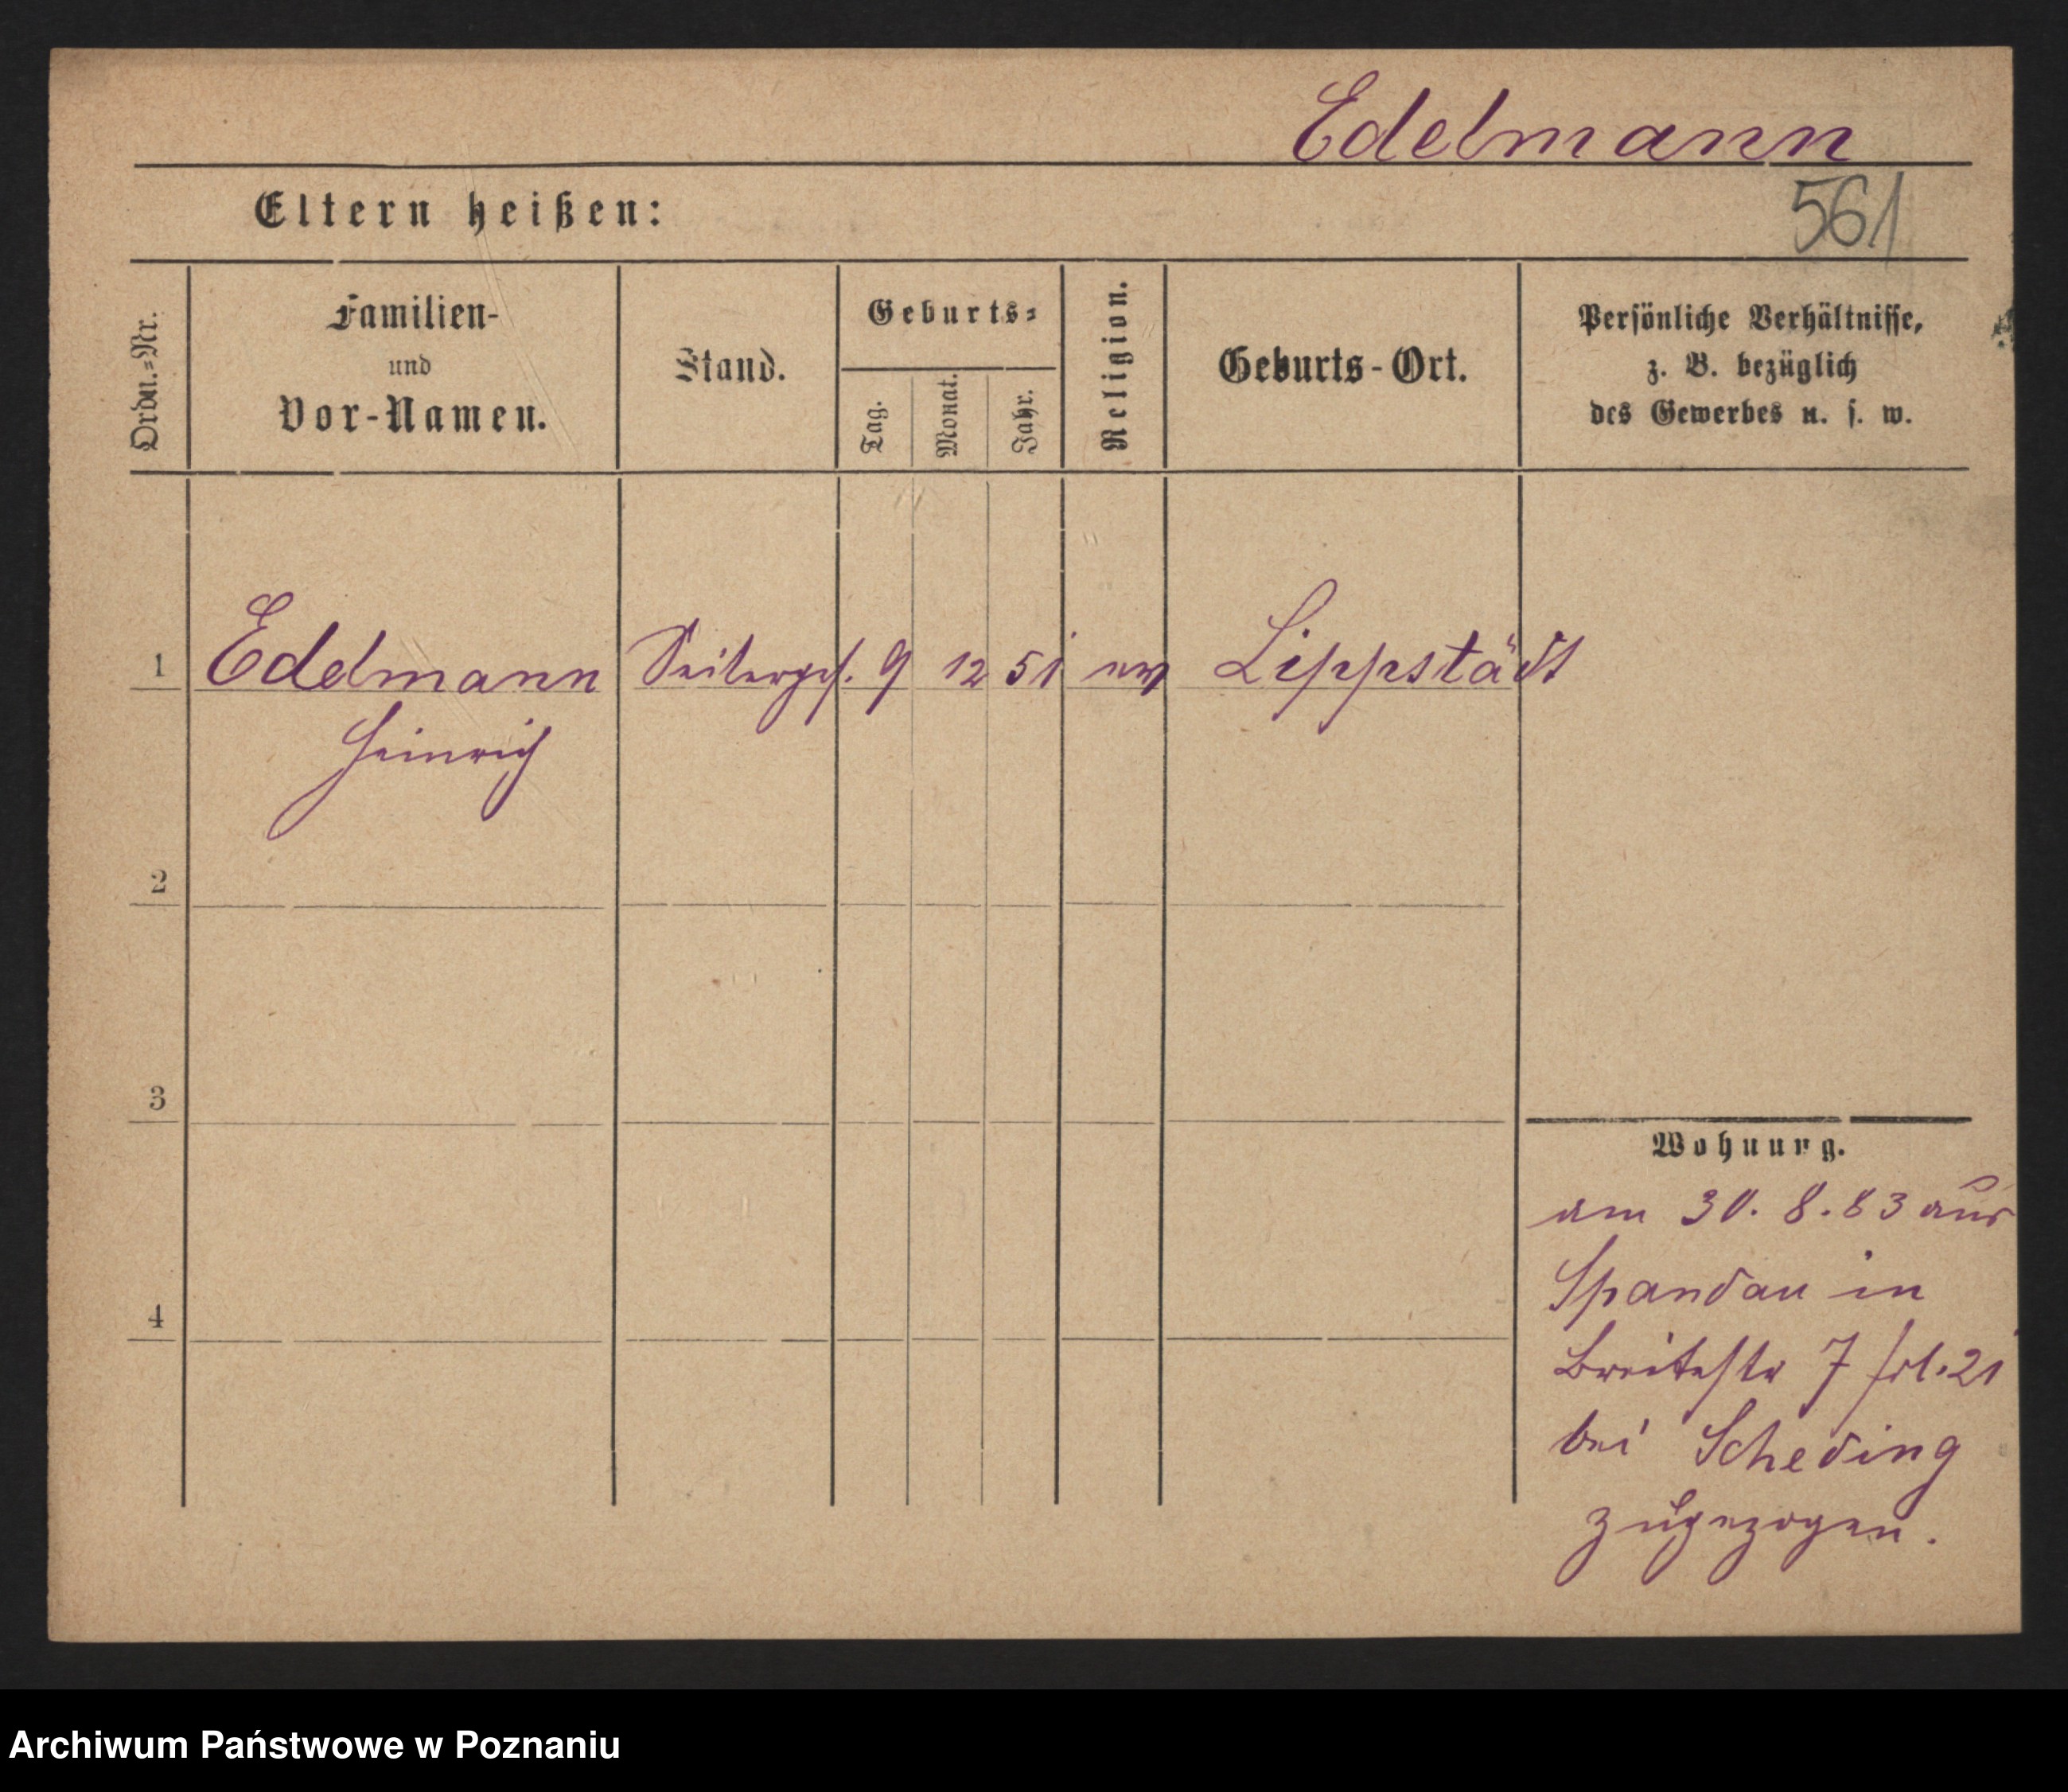 Edelmann
Eltern heißen:
561
Ordn.=Nr.
Familien-
und
Vor-Namen.
Stand.
Geburts=
Tag.
Monat.
Jahr.
Religion.
Geburts-Ort.
Persönliche Verhältnisse,
z. B. bezüglich
des Gewerbes u. s. w.
1 Edelmann Seilerges. 9 12 51 ev Lippstädt
Heinrich
2
3
4
Wohnung.
am 30. 8. 83 aus
Spandau in
Breitestr 7 21
bei Scheding
zugezogen.
Archiwum Państwowe w Poznaniu